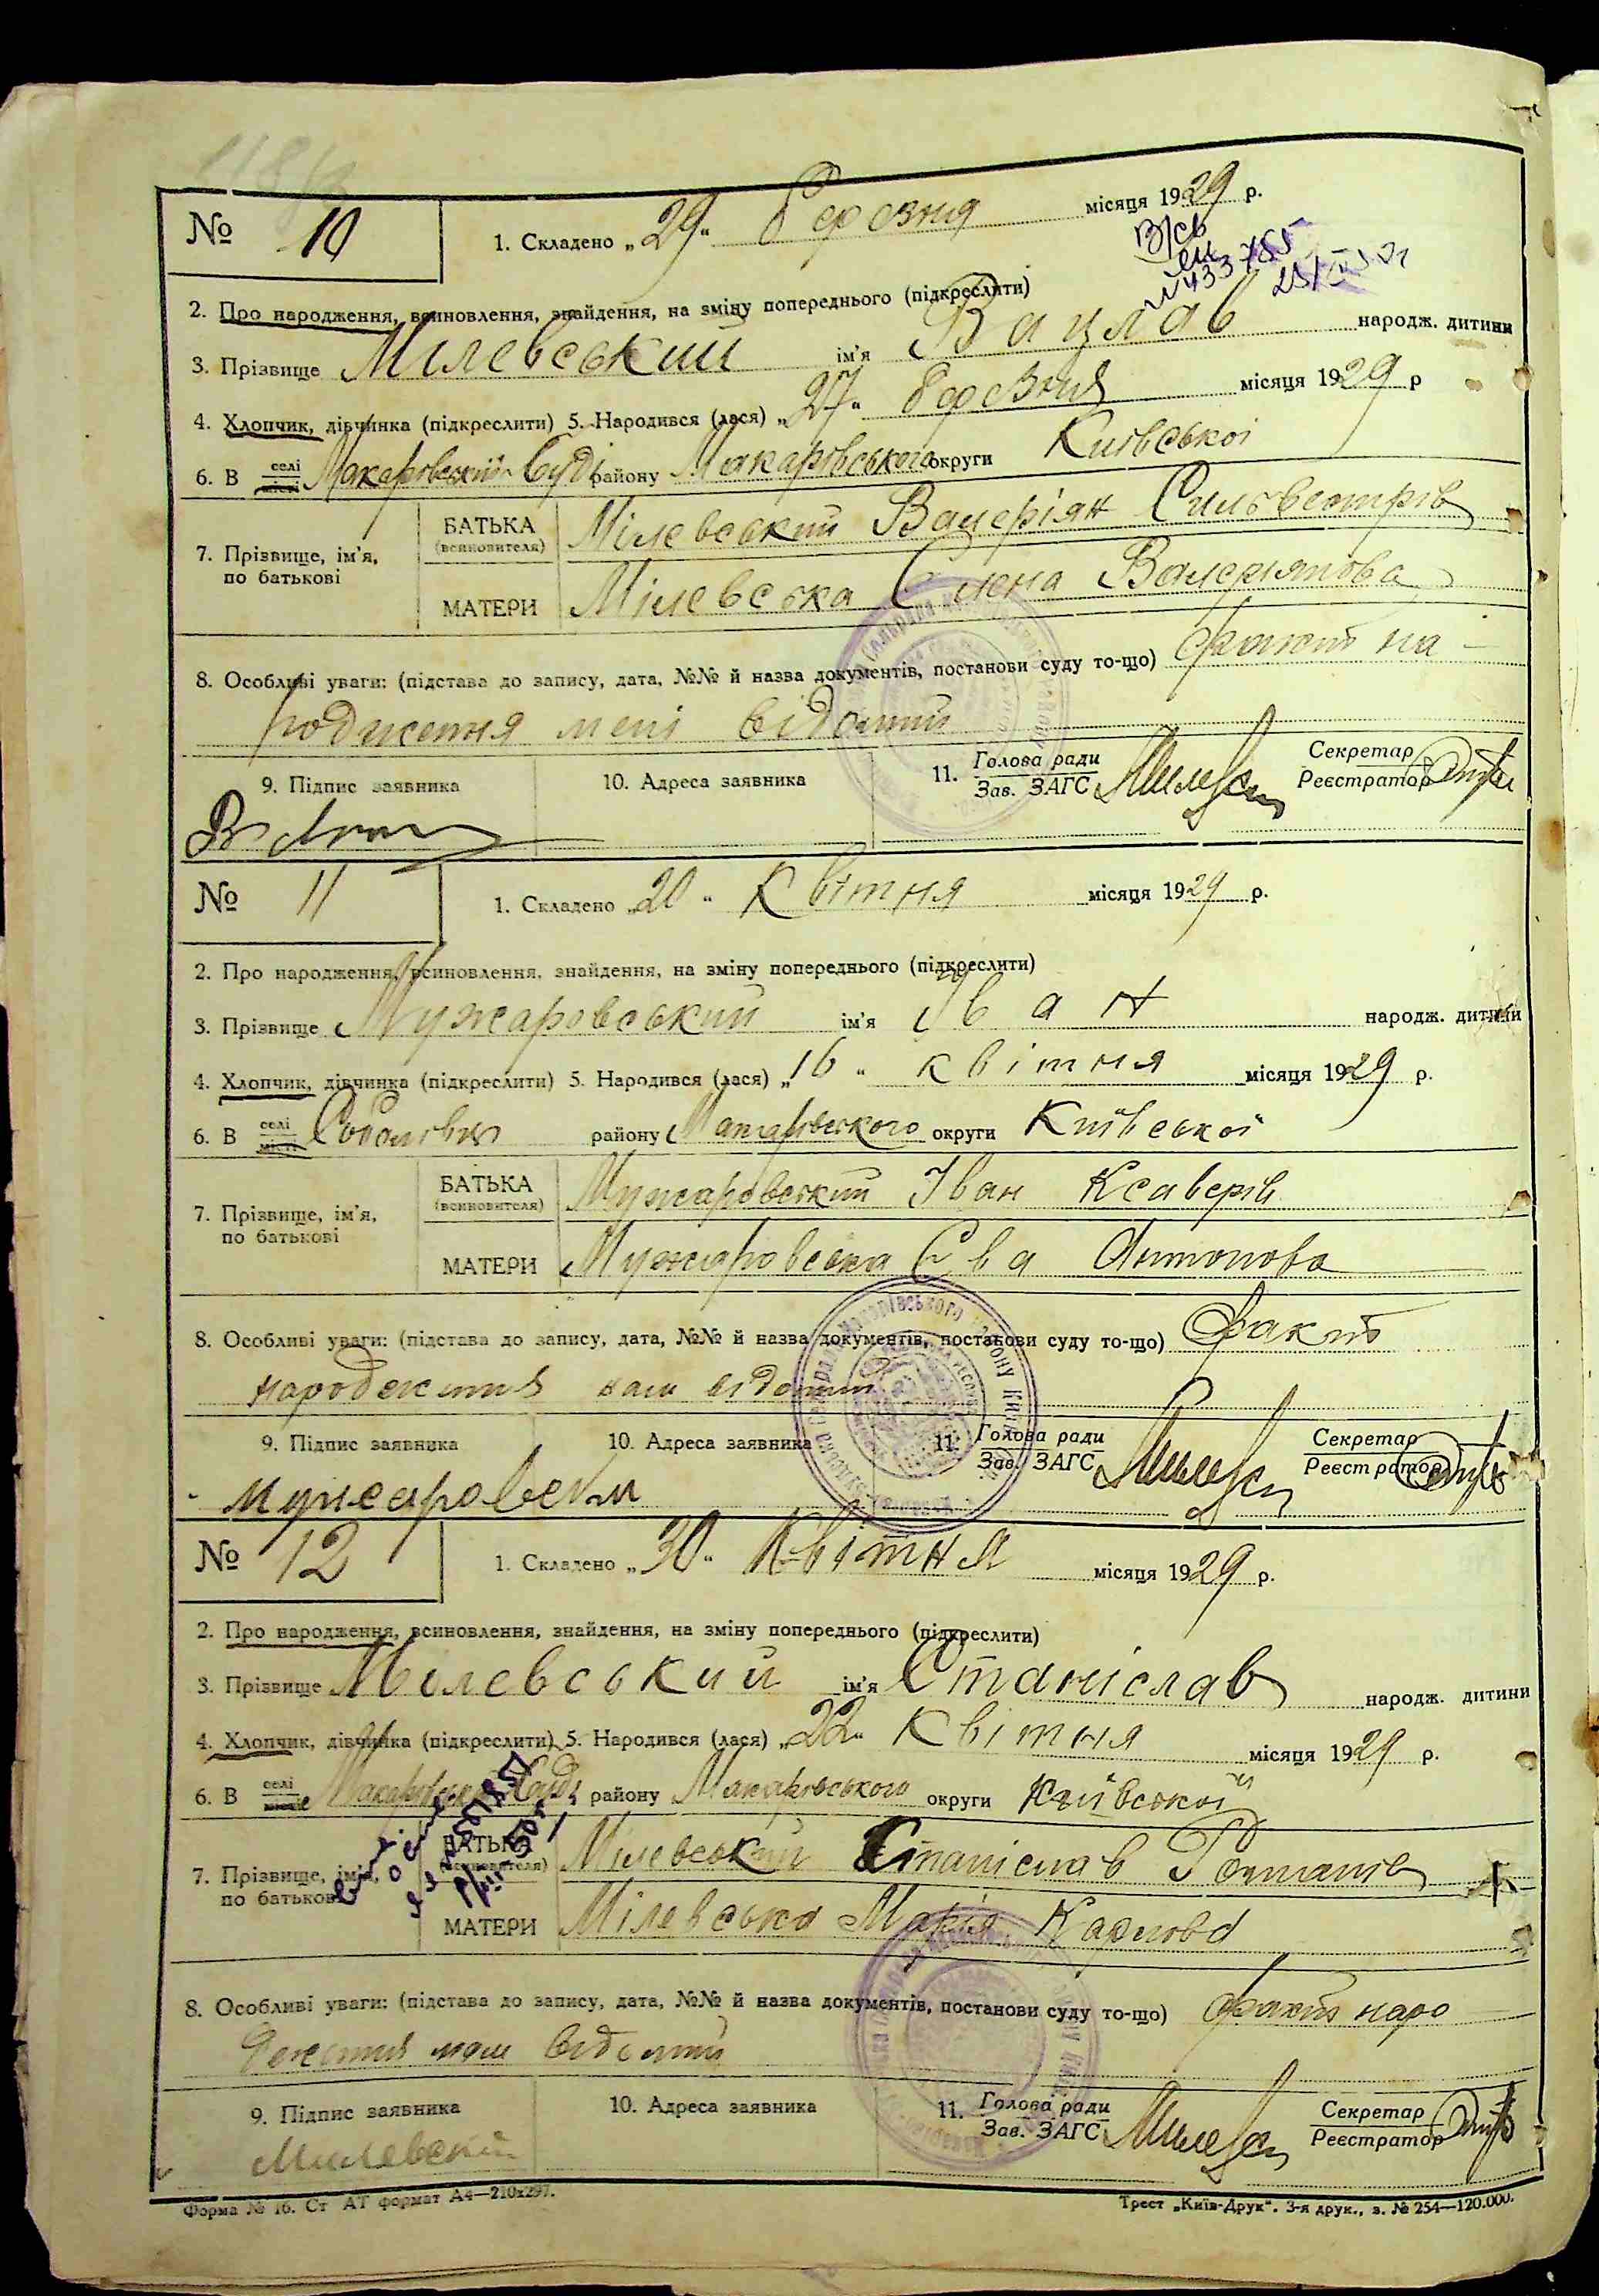 № 10
1. Складено „29“ березня місяця 1929 р.
2. Про народження, всиновлення, знайдення, на зміну попереднього (підкреслити)
3. Прізвище Мілевський ім'я Вацлав народж. дитини
4. Хлопчик, дівчинка (підкреслити) 5. Народився (лася) „27“ березня місяця 1929 р
6. В селі місті Макарівський Буді району Макарівського округи Київської
7. Прізвище, ім'я, по батькові
БАТЬКА (всиновителя) Мілевський Валеріян Сильвестрів
МАТЕРИ Мілевська Єлена Валеріянова
8. Особливі уваги: (підстава до запису, дата, №№ й назва документів, постанови суду то-що) факт на-
родження мені відомий
9. Підпис заявника 10. Адреса заявника 11. Голова ради Зав. ЗАГС Секретар Реєстратор
№ 11
1. Складено „20“ Квітня місяця 1929 р.
2. Про народження, всиновлення, знайдення, на зміну попереднього (підкреслити)
3. Прізвище Мужаровський ім'я Іван народж. дитини
4. Хлопчик, дівчинка (підкреслити) 5. Народився (лася) „16“ квітня місяця 1929 р.
6. В селі місті району Макарівського округи Київської
7. Прізвище, ім'я, по батькові
БАТЬКА (всиновителя) Мужаровський Іван Ксаверів
МАТЕРИ Мужаровська Єва Антонова
8. Особливі уваги: (підстава до запису, дата, №№ й назва документів, постанови суду то-що) Факт
народження нам відомий
9. Підпис заявника 10. Адреса заявника 11. Голова ради Зав. ЗАГС Секретар Реєстратор
№ 12
1. Складено „30“ Квітня місяця 1929 р.
2. Про народження, всиновлення, знайдення, на зміну попереднього (підкреслити)
3. Прізвище Мілевський ім'я Станіслав народж. дитини
4. Хлопчик, дівчинка (підкреслити) 5. Народився (лася) „22“ Квітня місяця 1929 р.
6. В селі місті Буді району Макарівського округи Київської
7. Прізвище, ім'я, по батькові
БАТЬКА (всиновителя) Мілевський Станіслав
МАТЕРИ Мілевська Марія Карлова
8. Особливі уваги: (підстава до запису, дата, №№ й назва документів, постанови суду то-що) факт наро
дження нам відомий
9. Підпис заявника 10. Адреса заявника 11. Голова ради Зав. ЗАГС Секретар Реєстратор
Милевский
Форма № 16. Ст АТ формат А4—210х297.
Трест „Київ-Друк“. 3-я друк., з. № 254—120.000.